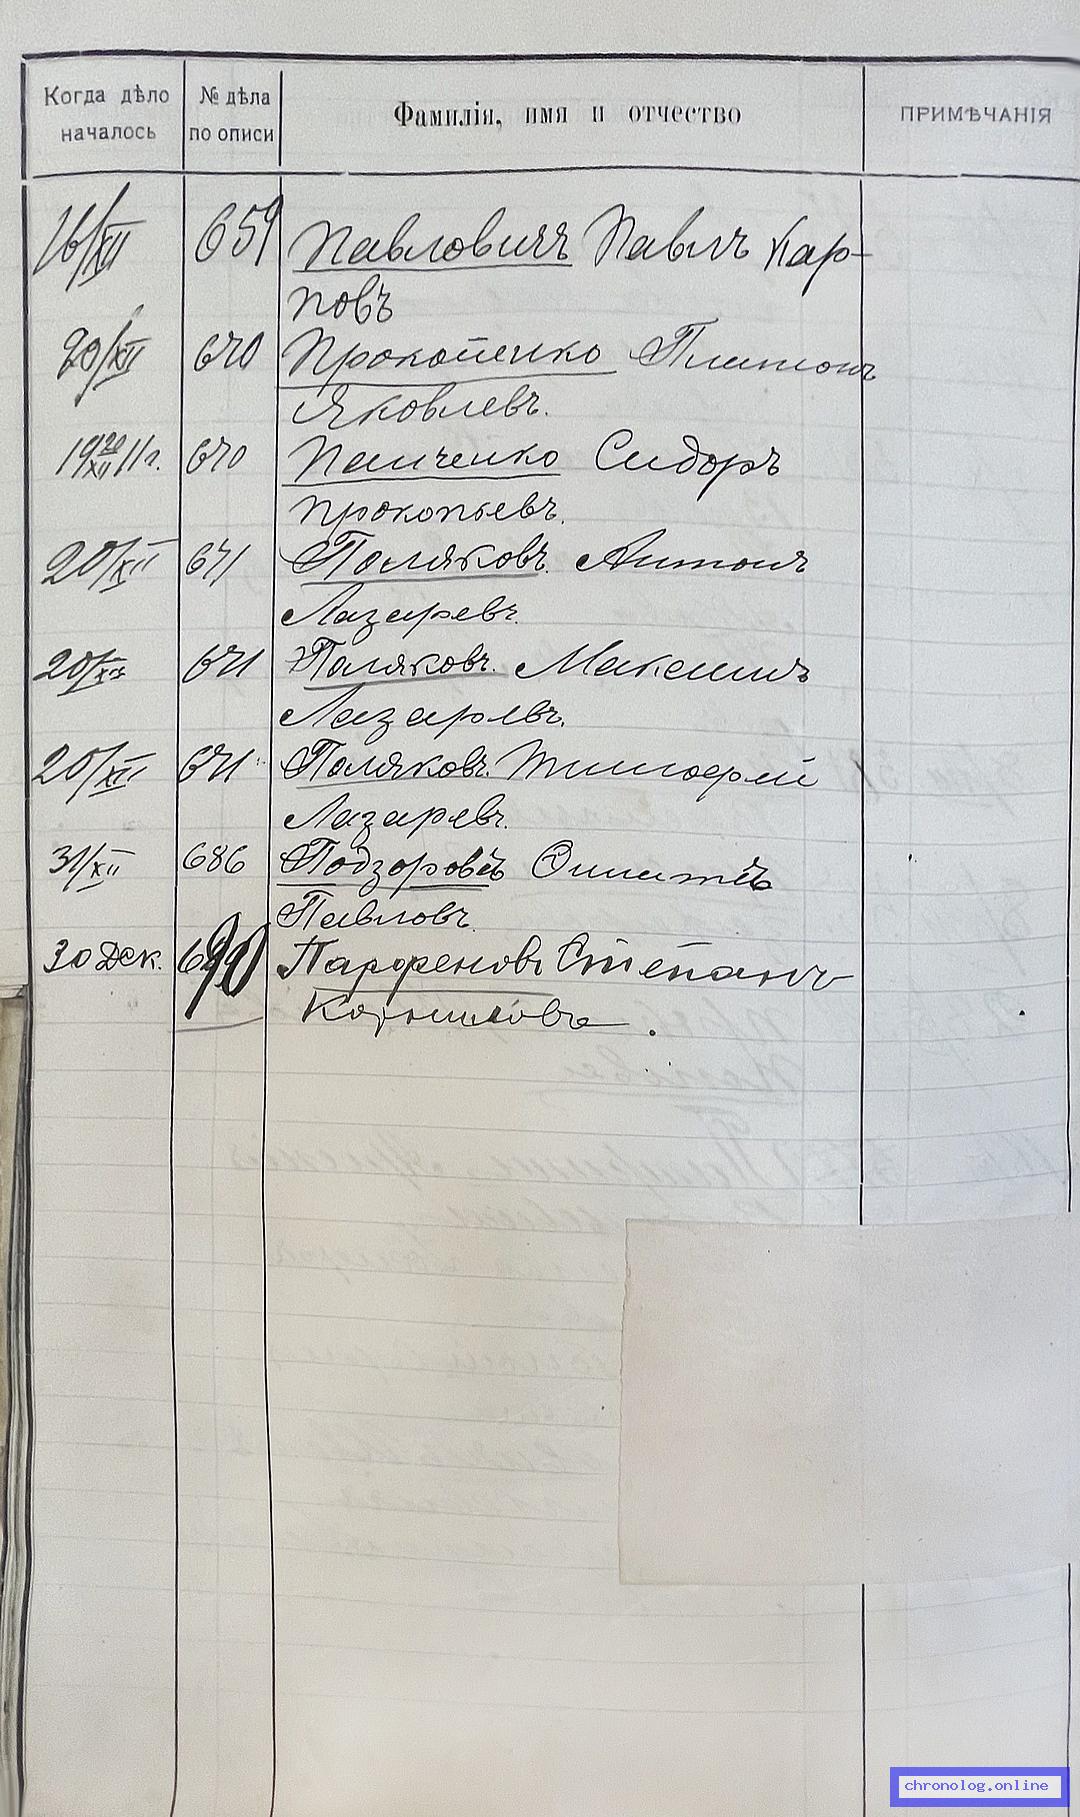 Когда дѣло началось
№ дѣла по описи
Фамилія, имя и отчество
ПРИМѢЧАНІЯ
16/XII 659 Павловичъ Павлъ Кар-
повъ
20/XII 670 Прокопенко Платонъ
Яковлевъ.
19 20/XII 11 г. 670 Панченко Сидоръ
Прокопьевъ.
20/XII 671 Поляковъ. Антонъ
Лазаревъ.
20/XII 671 Поляковъ. Максимъ
Лазаревъ.
20/XII 671 Поляковъ. Тимофей
Лазаревъ.
31/XII 686 Подзоровъ
Павловъ.
30 Дек. 690 Парфеновъ Степанъ
Корниловъ.
chronolog.online